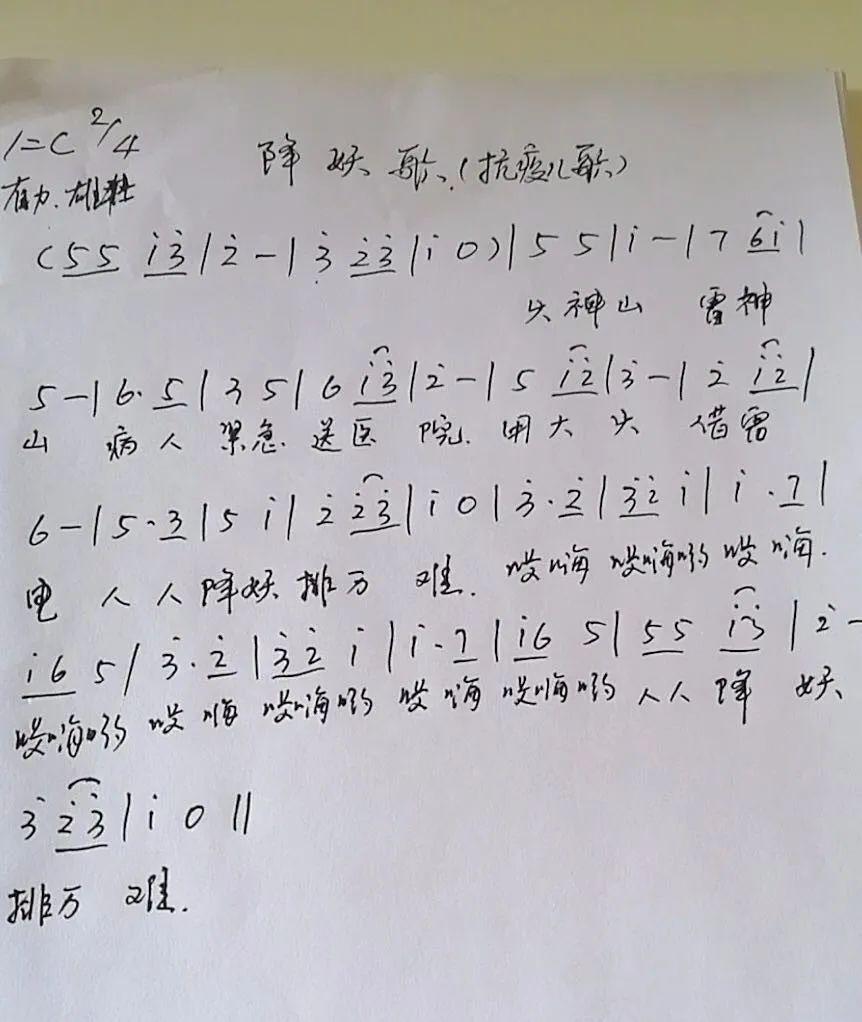 1=C 2/4
降妖歌(抗疫儿歌)
有力.雄壮
(5 5 i̇ 3̇ | 2̇ - | 3̇ 2̇ 3̇ | i̇ 0) | 5 5 | i̇ - | 7 6 i̇ |
火神山 雷神
5 - | 6· 5 | 3 5 | 6 i̇ 3̇ | 2̇ - | 5 i̇ 2̇ | 3̇ - | 2̇ i̇ 2̇ |
山 病人 紧急 送医 院. 用大 火 借雷
6 - | 5· 3 | 5 i̇ | 2̇ 2̇ 3̇ | i̇ 0 | 3̇· 2̇ | 3̇ 2̇ i̇ | i̇· 7 |
电 人人 降妖 排万 难. 哎嗨 哎嗨哟 哎嗨.
i̇ 6 5 | 3̇· 2̇ | 3̇ 2̇ i̇ | i̇· 7 | i̇ 6 5 | 5 5 i̇ 3̇ | 2̇ -
哎嗨哟 哎嗨 哎嗨哟 哎嗨 哎嗨哟 人人 降 妖
3̇ 2̇ 3̇ | i̇ 0 ||
排万 难.